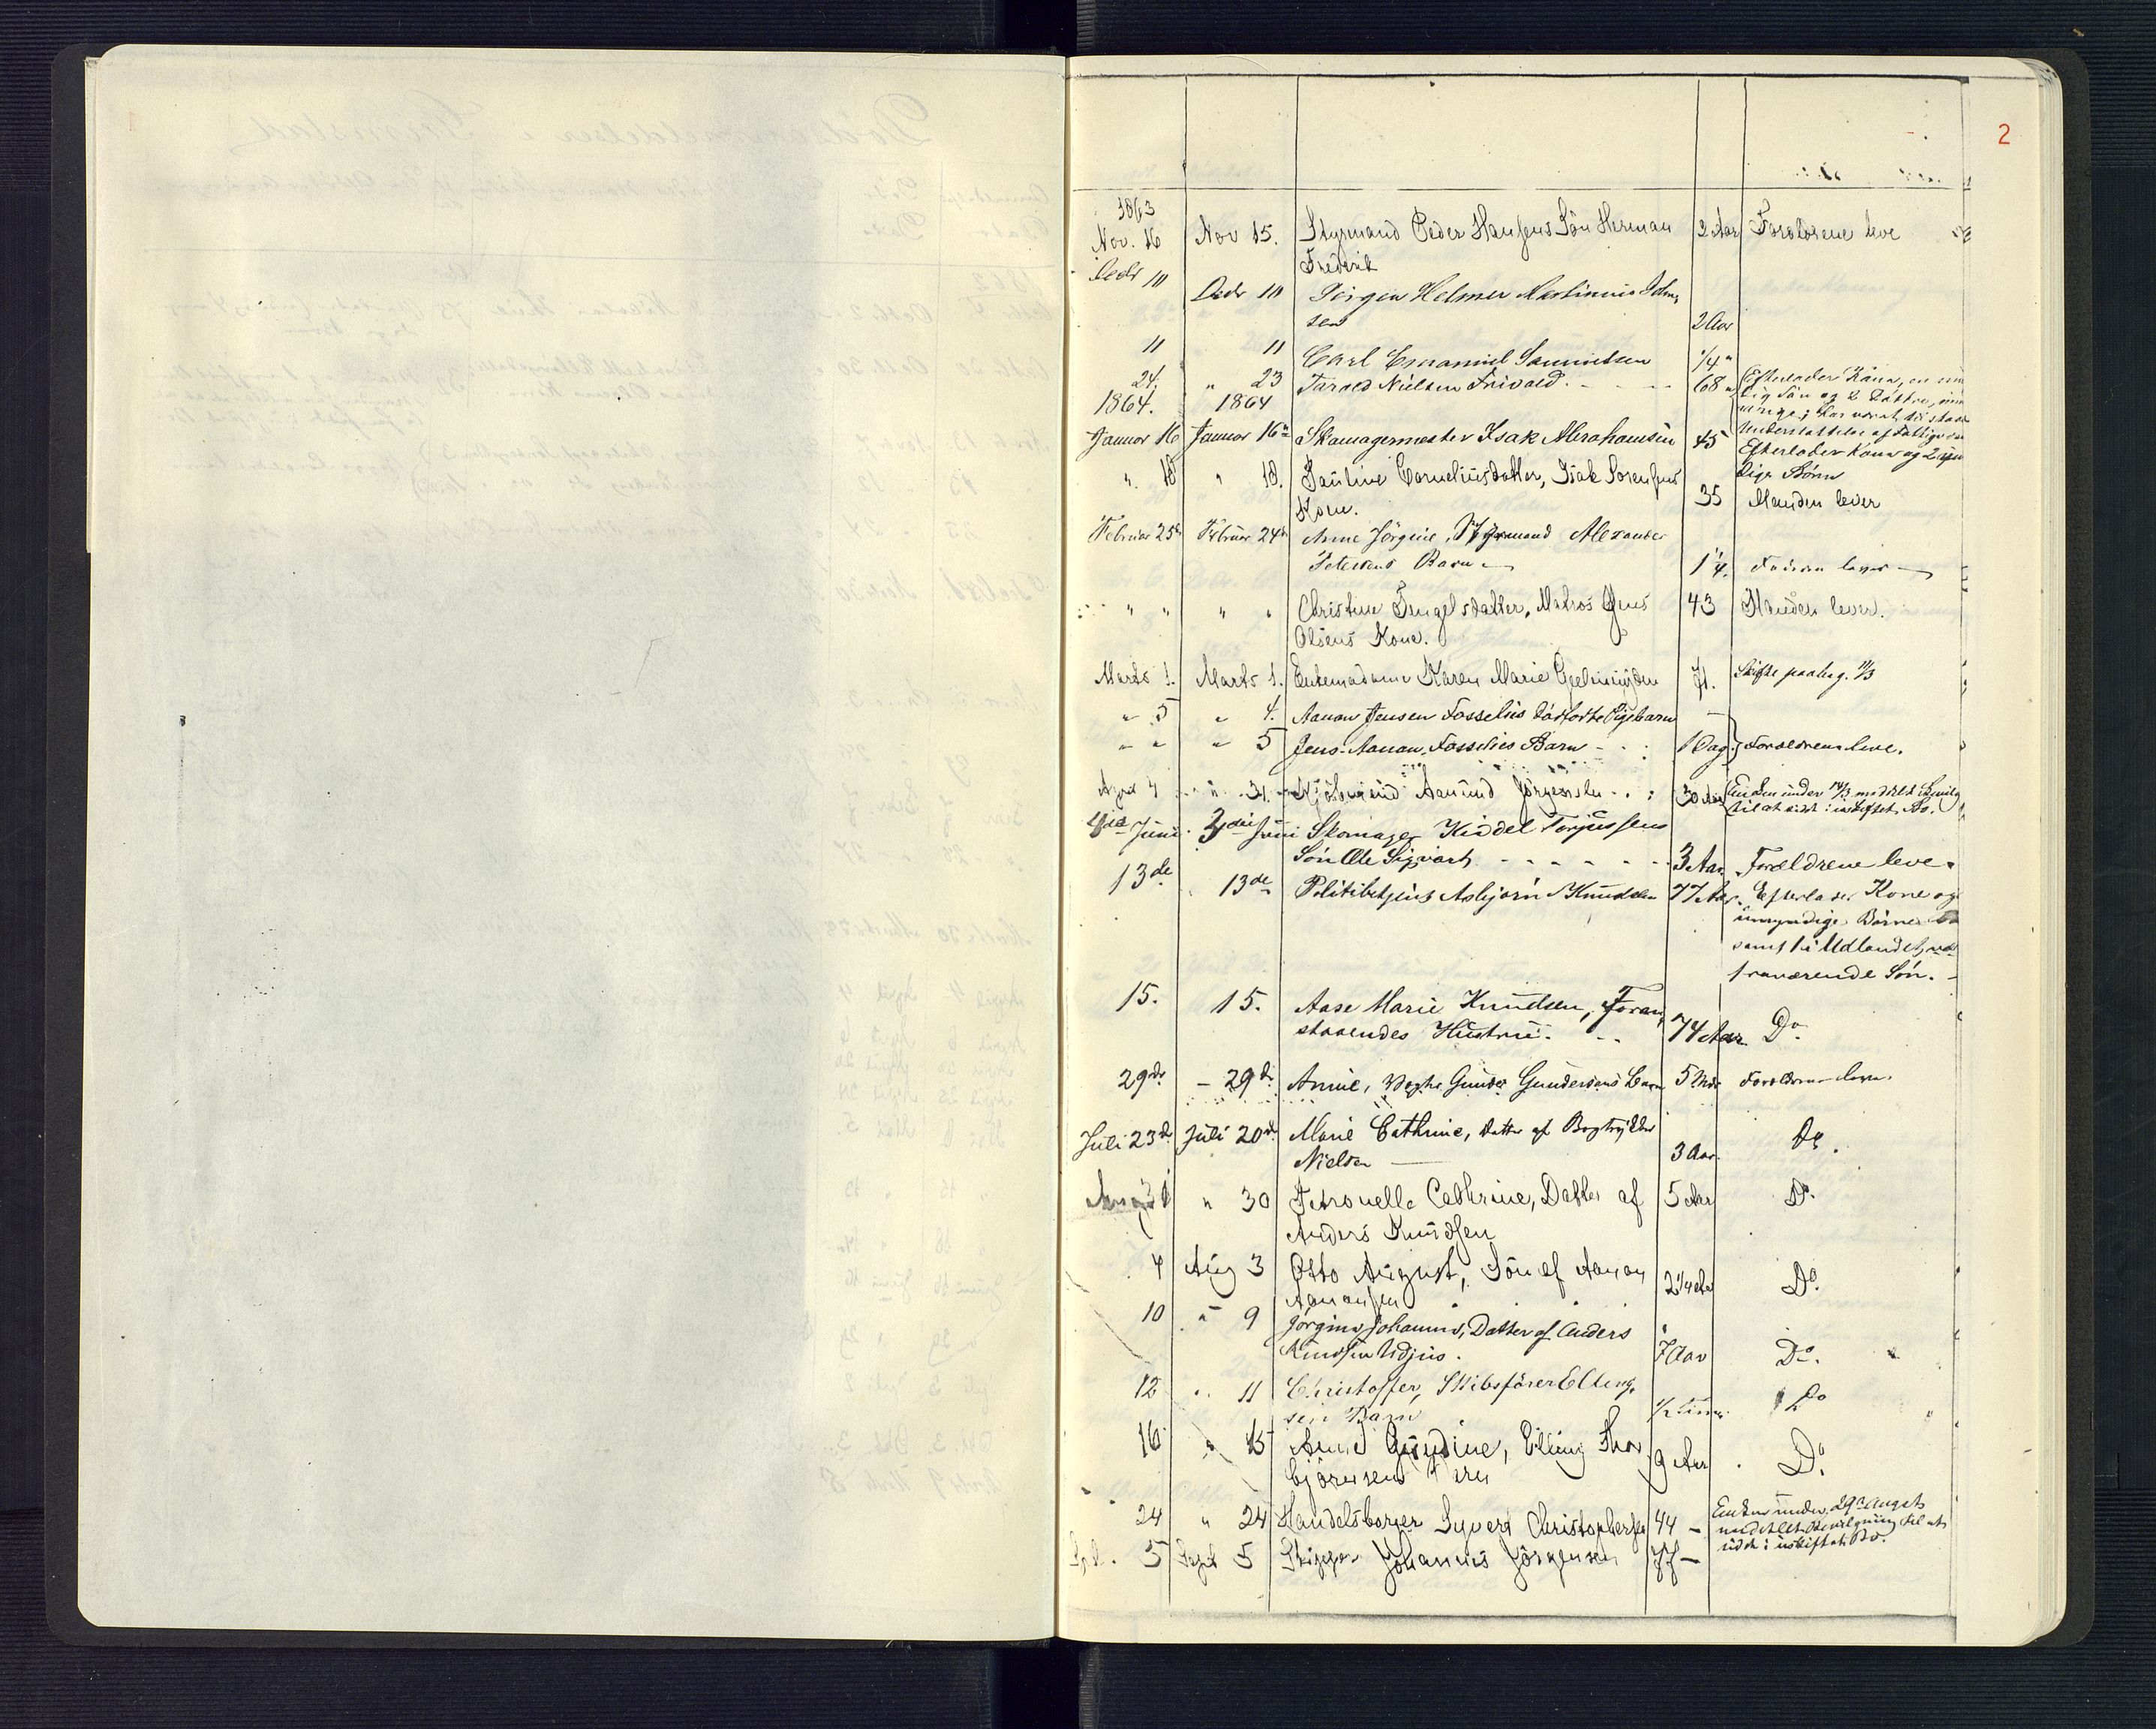 2
1863
Nov. 16 Nov 15. Styrmand Peder Hansens Sön Herman 2 Aar Forældrene leve
Frederik
Decbr 10 Decbr 10 Jörgen Helmer Martinius John-
sen 2 Aar
11 11 Carl Emanuel Samuelsen 1/4 "
24. " 23 Tarald Nielsen Frivold. 68 " Efterlader Kone, en
1864. 1864
Januar 16 Januar 16 Skomagermester Isak Abrahamsen 45 Efterlader Kone og 2
dige Börn
" 18 " 18. Pauline Corneliusdatter, Isak Sörensens
Kone. 35 Manden lever
Februar 25 Februar 24 Anne Jörgine, Styrmand Alexander
Petersens Barn 1 1/4. Faderen lever
" " " " Christine Tengelsdatter, Matros Jens 43 Manden lever.
Olsens Kone.
Marts 1. Marts 1. Enkemadame Karen Marie 71. Skifte
" 5 " 4. Aanon Jensen Fosselies dödfödte Pigebarn
" " " 5 Jens Aanon Fosselies Barn 1 Dag Forældrene leve.
April 4 " 31. Aanund Jörgensen 30 Aar Enken under 14/3 meddelt
til at sidde i uskiftet Bo.
Juni 3die Juni Skomager Kiddel Torjussens
Sön Ole Sigvart 3 Aar Forældrene leve.
13de 13de Politibetjent Asbjörn Knudsen 77 Aar. Efterlader Kone og
umyndige Börn
samt 1 i Udlandet
fraværende Sön.
15. 15. Aase Marie Knudsen, Foran-
staaendes Hustru. 74 Aar. Do.
29de - 29de Anne, Gunder Gundersens Barn 5 Forældrene leve.
Juli 23d Juli 20d. Marie Cathrine, Datter af Bogtrykker
Nielsen 3 Aar. Do.
31 " 30 Petronelle Cathrine, Datter af 5 Aar Do.
Anders Knudsen
4 Aug 3 Otto August, Sön af Aanon 2 1/4 Aar Do.
Aanonsen
10 " 9 Jörgine Johanne, Datter af Anders
Knudsen Udjus. 7 Aar Do.
12 " 11 Christoffer, Skibsförer Elling-
sens Barn 1/2 Time. Do
16 " 15 Anne Gundine, Elling Thor-
björnsens Barn 9 Aar Do.
24 " 24 Handelsborger Syvert Christophersen 44 - Enken under 29 August
meddelt Bevilgning til at
sidde i uskiftet Bo.
Sept. 5 Sept 5 Skipper Johannes Jörgensen 77 -